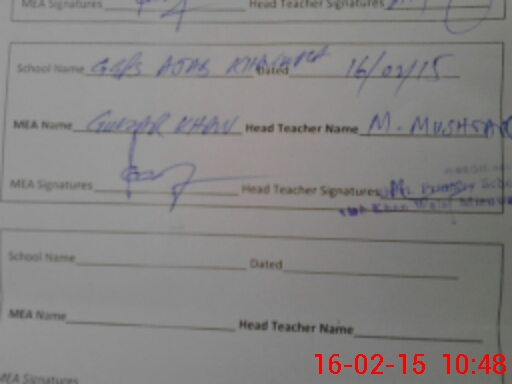 MEA Signatures Head Teacher Signatures
School Name GGPS AJAB KHAN Dated 16/02/15
MEA Name GULZAR KHAN Head Teacher Name M. MUSHTAQ
MEA Signatures Head Teacher Signatures
School Name Dated
MEA Name Head Teacher Name
MEA Signatures
16-02-15 10:48